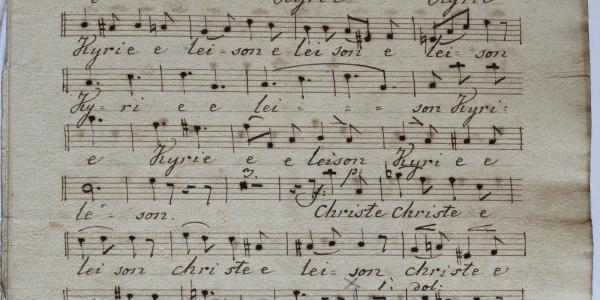 Kyrie e lei=son e lei son e lei=son
Ky-ri e e lei= = = son Kyri=
e Kyrie e e leison Kyri e e
3. f: p:
le=son. Christe Christe e
lei son christe e lei=son christe e
dol: